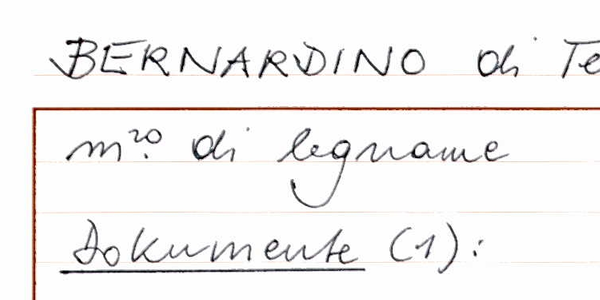 BERNARDINO di Te
m.ro di legname
Dokumente (1):